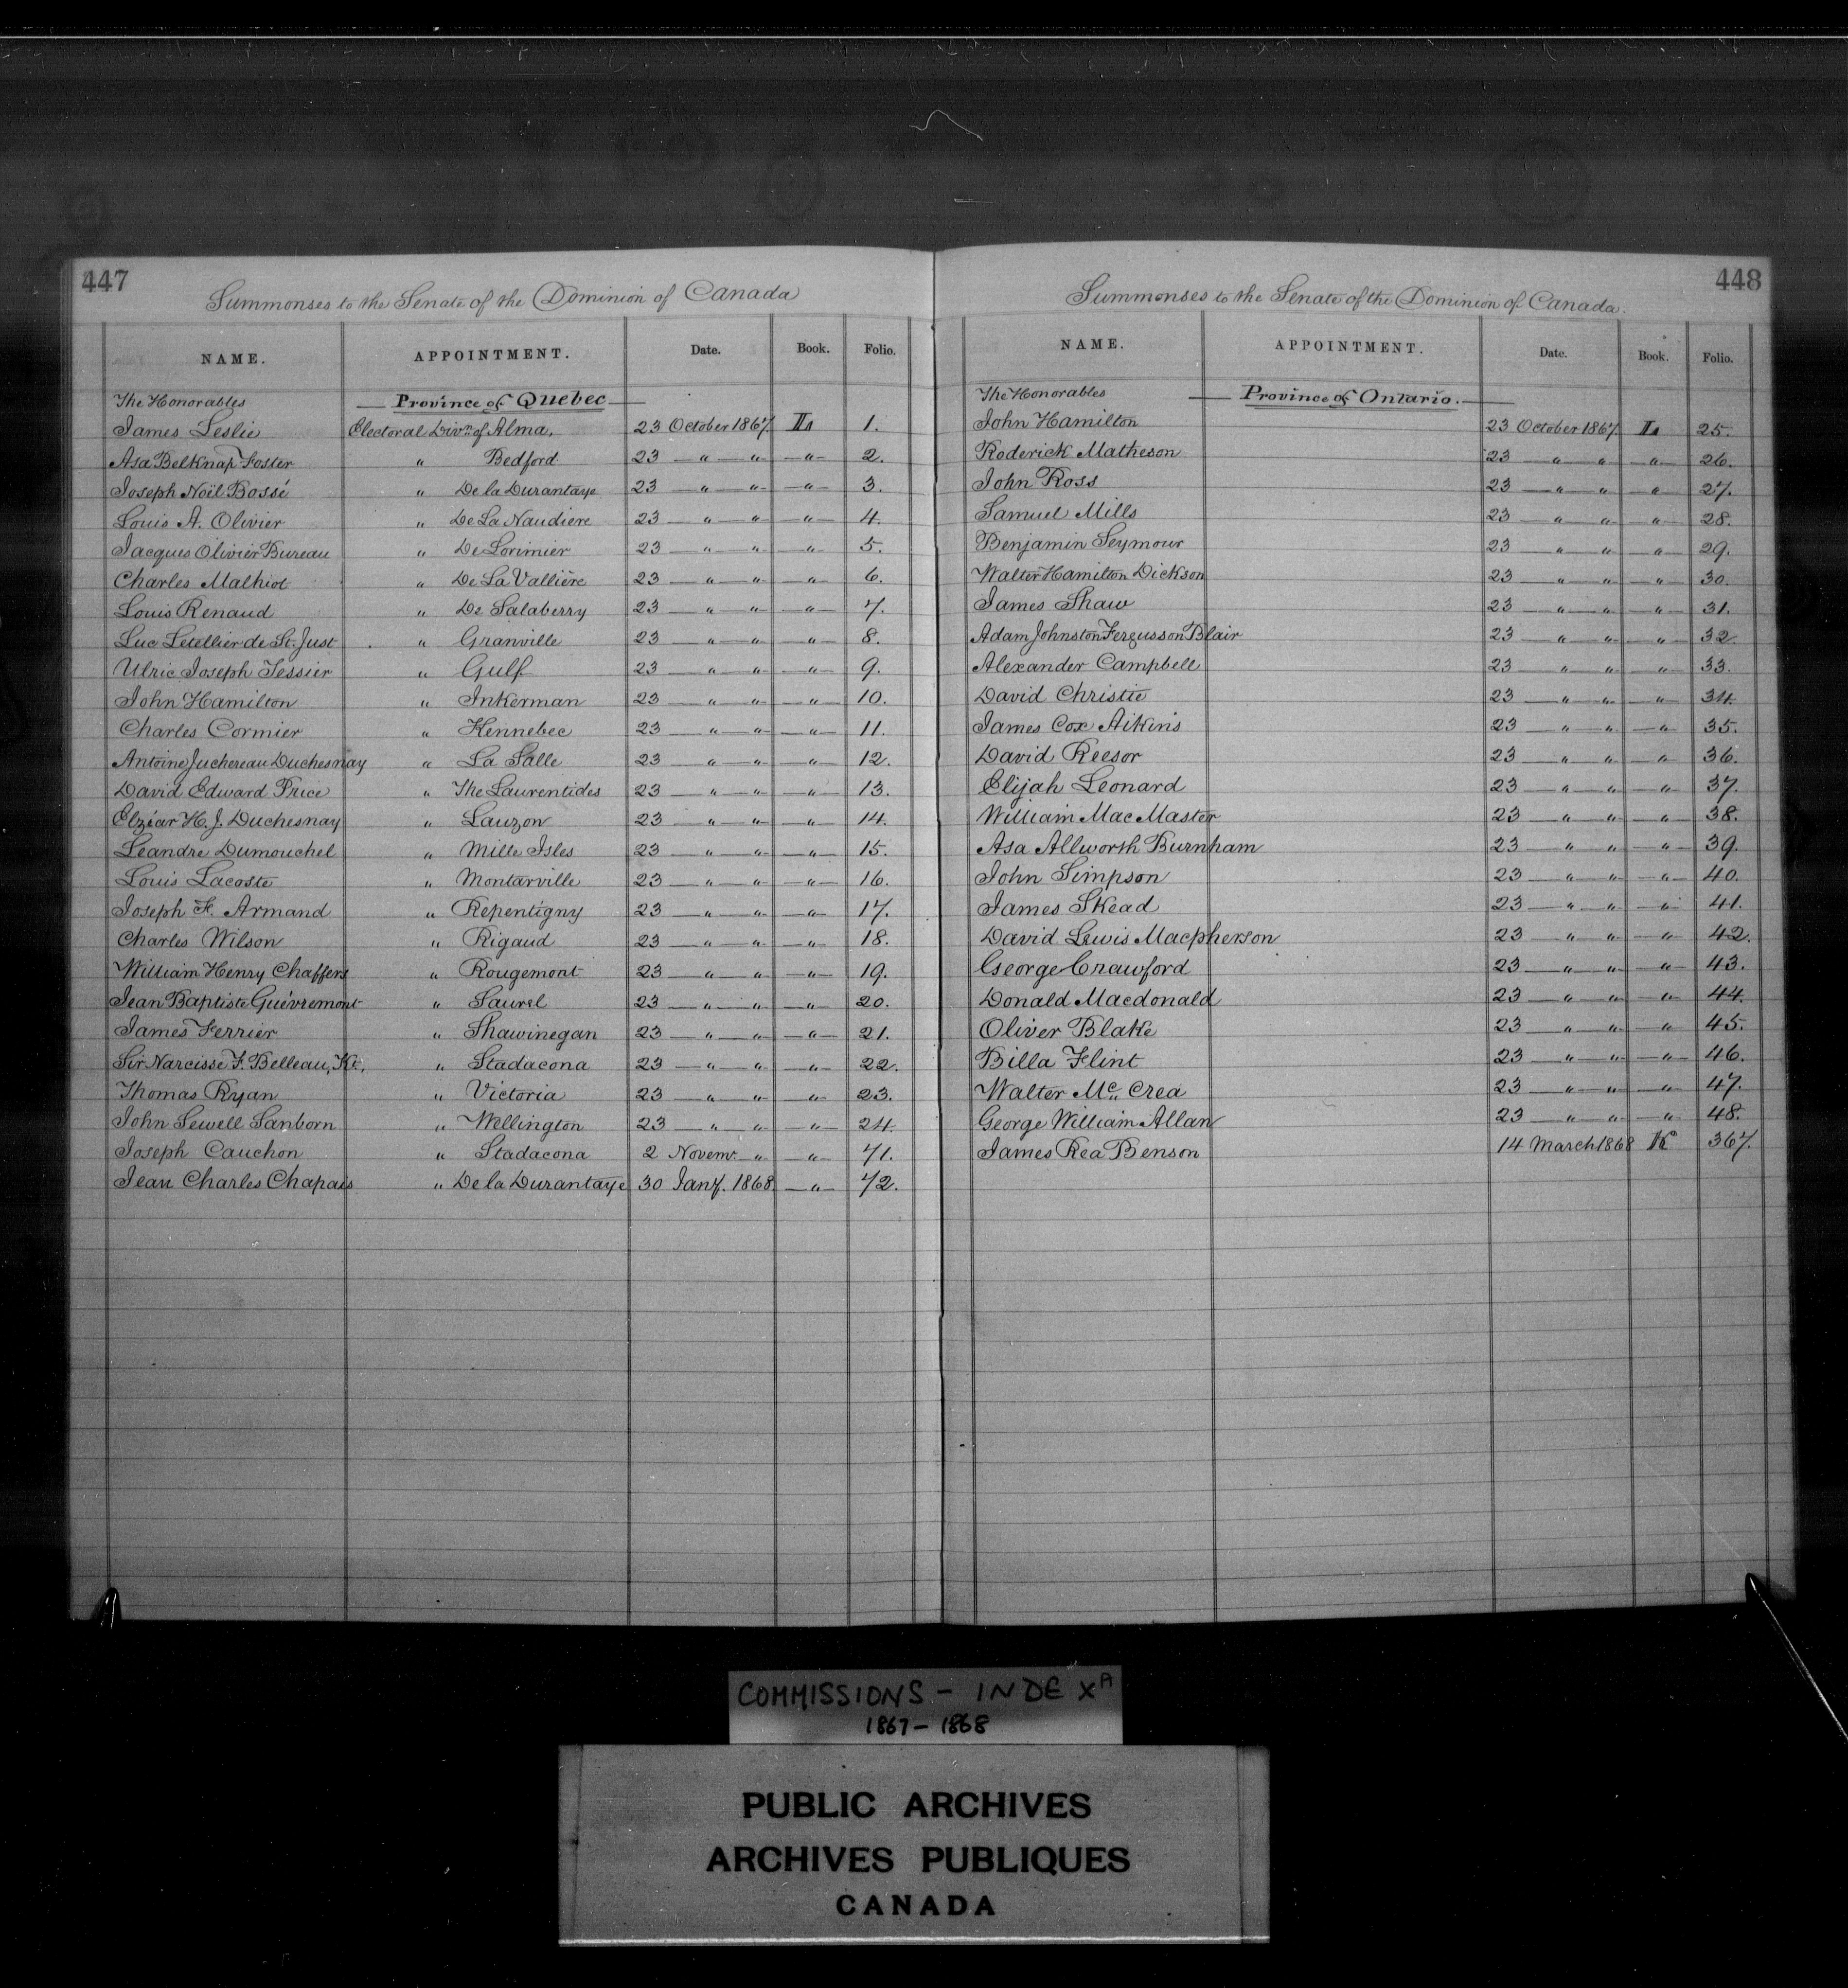 447
Summonses to the Senate of the Dominion of Canada
NAME. APPOINTMENT. Date. Book. Folio.
The Honorables Province of Quebec
James Leslie Electoral Divn. of Alma. 23 October 1867. L 1.
Asa Belknap Foster " Bedford 23 " " " 2.
Joseph Noël Bossé " De la Durantaye 23 " " " 3.
Louis A. Olivier " De La Naudiere 23 " " " 4.
Jacques Olivier Bureau " De Lorimier 23 " " " 5.
Charles Malhiot " De La Vallière 23 " " " 6.
Louis Renaud " De Salaberry 23 " " " 7.
Luc Letellier de St. Just " Granville 23 " " " 8.
Ulric Joseph Tessier " Gulf 23 " " " 9.
John Hamilton " Inkerman 23 " " " 10.
Charles Cormier " Kennebec 23 " " " 11.
Antoine Juchereau Duchesnay " La Salle 23 " " " 12.
David Edward Price " The Laurentides 23 " " " 13.
Elzéar H. J. Duchesnay " Lauzon 23 " " " 14.
Leandre Dumouchel " Mille Isles 23 " " " 15.
Louis Lacoste " Montarville 23 " " " 16.
Joseph F. Armand " Repentigny 23 " " " 17.
Charles Wilson " Rigaud 23 " " " 18.
William Henry Chaffers " Rougemont 23 " " " 19.
Jean Baptiste Guévremont " Saurel 23 " " " 20.
James Ferrier " Shawinegan 23 " " " 21.
Sir Narcisse F. Belleau, Kt. " Stadacona 23 " " " 22.
Thomas Ryan " Victoria 23 " " " 23.
John Sewell Sanborn " Wellington 23 " " " 24.
Joseph Cauchon " Stadacona 2 Novemr. " " 71.
Jean Charles Chapais " De la Durantaye 30 Jany. 1868. " 72.
448
Summonses to the Senate of the Dominion of Canada.
NAME. APPOINTMENT. Date. Book. Folio.
The Honorables Province of Ontario.
John Hamilton 23 October 1867 L 25.
Roderick Matheson 23 " " " 26.
John Ross 23 " " " 27.
Samuel Mills 23 " " " 28.
Benjamin Seymour 23 " " " 29.
Walter Hamilton Dickson 23 " " " 30.
James Shaw 23 " " " 31.
Adam Johnston Fergusson Blair 23 " " " 32
Alexander Campbell 23 " " " 33.
David Christie 23 " " " 34.
James Cox Aikins 23 " " " 35.
David Reesor 23 " " " 36.
Elijah Leonard 23 " " " 37.
William Mac Master 23 " " " 38.
Asa Allworth Burnham 23 " " " 39.
John Simpson 23 " " " 40.
James Skead 23 " " " 41.
David Lewis Macpherson 23 " " " 42.
George Crawford 23 " " " 43.
Donald Macdonald 23 " " " 44.
Oliver Blake 23 " " " 45.
Billa Flint 23 " " " 46.
Walter Mc. Crea 23 " " " 47.
George William Allan 23 " " " 48.
James Rea Benson 14 March 1868 K 367.
COMMISSIONS - INDEX A
1867 - 1868
PUBLIC ARCHIVES
ARCHIVES PUBLIQUES
CANADA